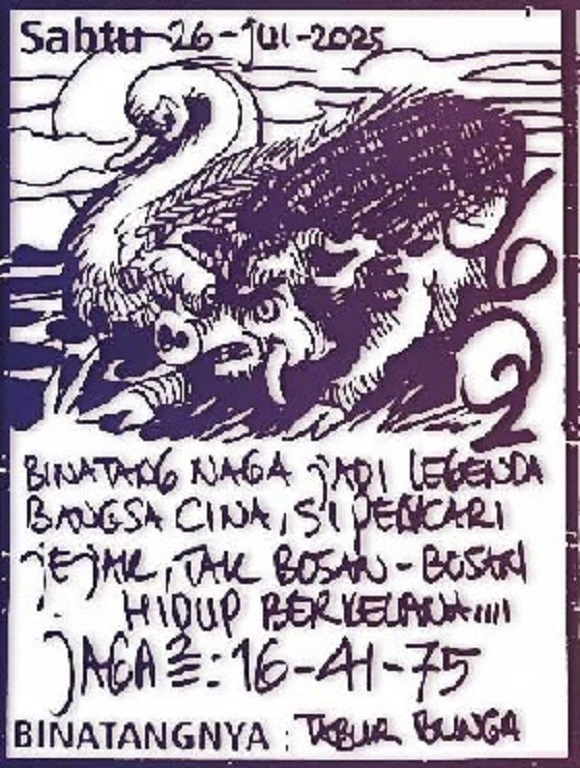 Sabtu 26-JUL-2025
6
2
BINATANG NAGA JADI LEGENDA
BANGSA CINA, SI PENCARI
JEJAK, TAK BOSAN-BOSAN
HIDUP BERKELANA....
JAGA²: 16-41-75
BINATANGNYA : TABUR BUNGA